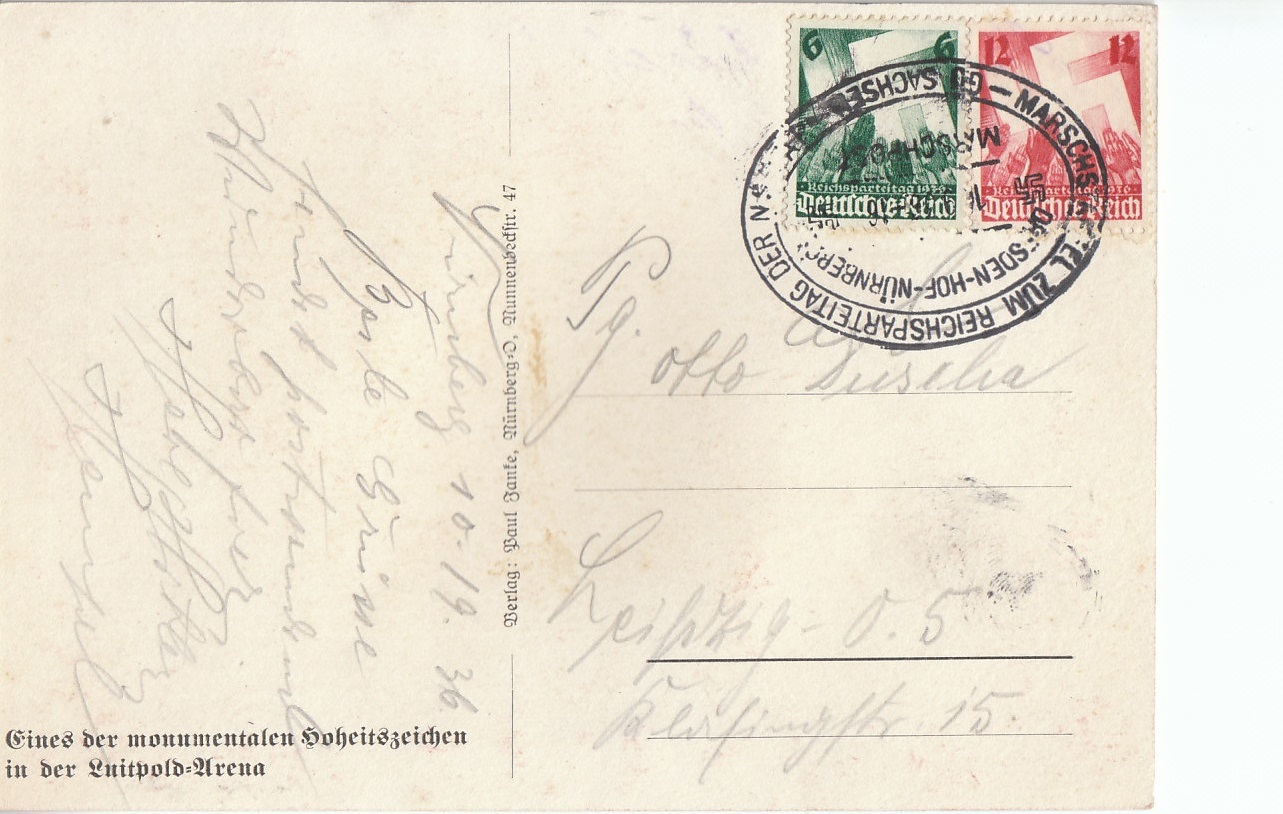 Nürnberg 10.19.36
Beste Grüsse
sendet
Verlag: Paul Janke, Nürnberg-O, Nunnenbeckstr. 47
Eines der monumentalen Hoheitszeichen
in der Luitpold-Arena
6 6
Reichsparteitag 1936
Deutsches Reich
12 12
Reichsparteitag 1936
Deutsches Reich
MARSCHSTAFFEL ZUM REICHSPARTEITAG DER N.S.
SACHSEN
MARSCHPOST
DRESDEN-HOF-NÜRNBERG
Pg.
Otto
Leipzig - O. 5
Klasingstr. 15.